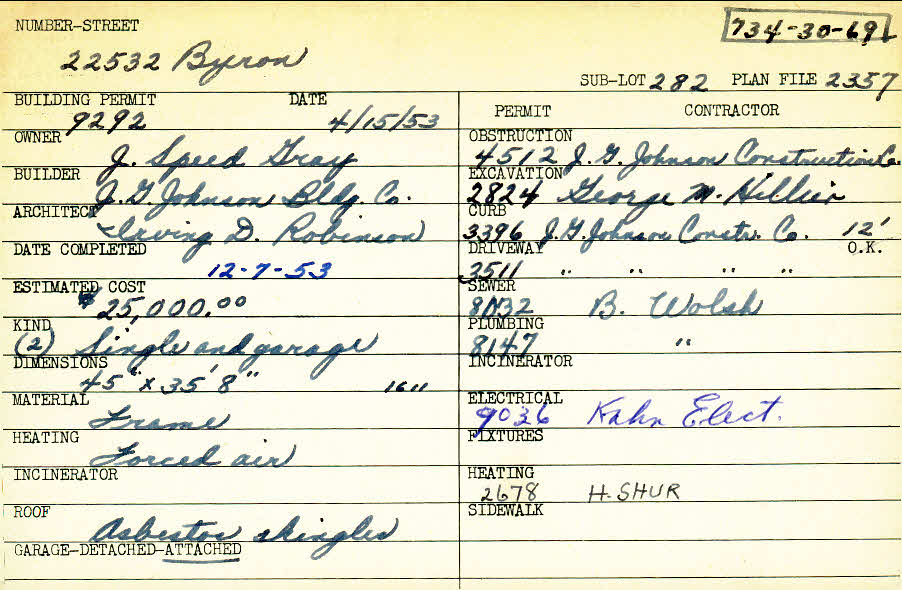 NUMBER-STREET
734-30-69
22532 Byron
SUB-LOT 282 PLAN FILE 2357
BUILDING PERMIT DATE
9292 4/15/53
OWNER
J. Speed Gray
BUILDER
J.G. Johnson Bldg. Co.
ARCHITECT
Irving D. Robinson
DATE COMPLETED
12-7-53
ESTIMATED COST
$25,000.00
KIND
(2) Single and garage
DIMENSIONS
45" x 35' 8" 1611
MATERIAL
Frame
HEATING
Forced air
INCINERATOR
ROOF
Asbestos shingles
GARAGE-DETACHED-ATTACHED
PERMIT CONTRACTOR
OBSTRUCTION
4512 J.G. Johnson Construction Co.
EXCAVATION
2824 George M. Hillier
CURB
3396 J.G. Johnson Constr. Co. 12'
DRIVEWAY O.K.
3511 " " " "
SEWER
8032 B. Wolsh
PLUMBING
8147 "
INCINERATOR
ELECTRICAL
9036 Kahn Elect.
FIXTURES
HEATING
2678 H. SHUR
SIDEWALK